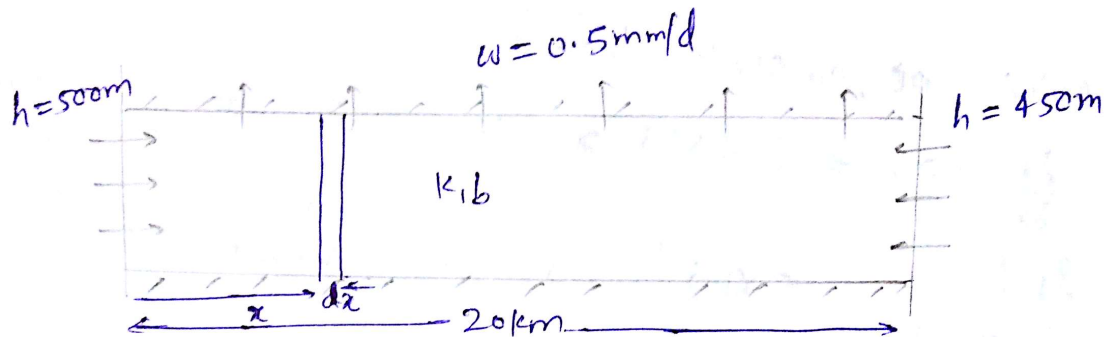 w = 0.5mm/d
h = 500m
h = 450m
K, b
dx
x
20km